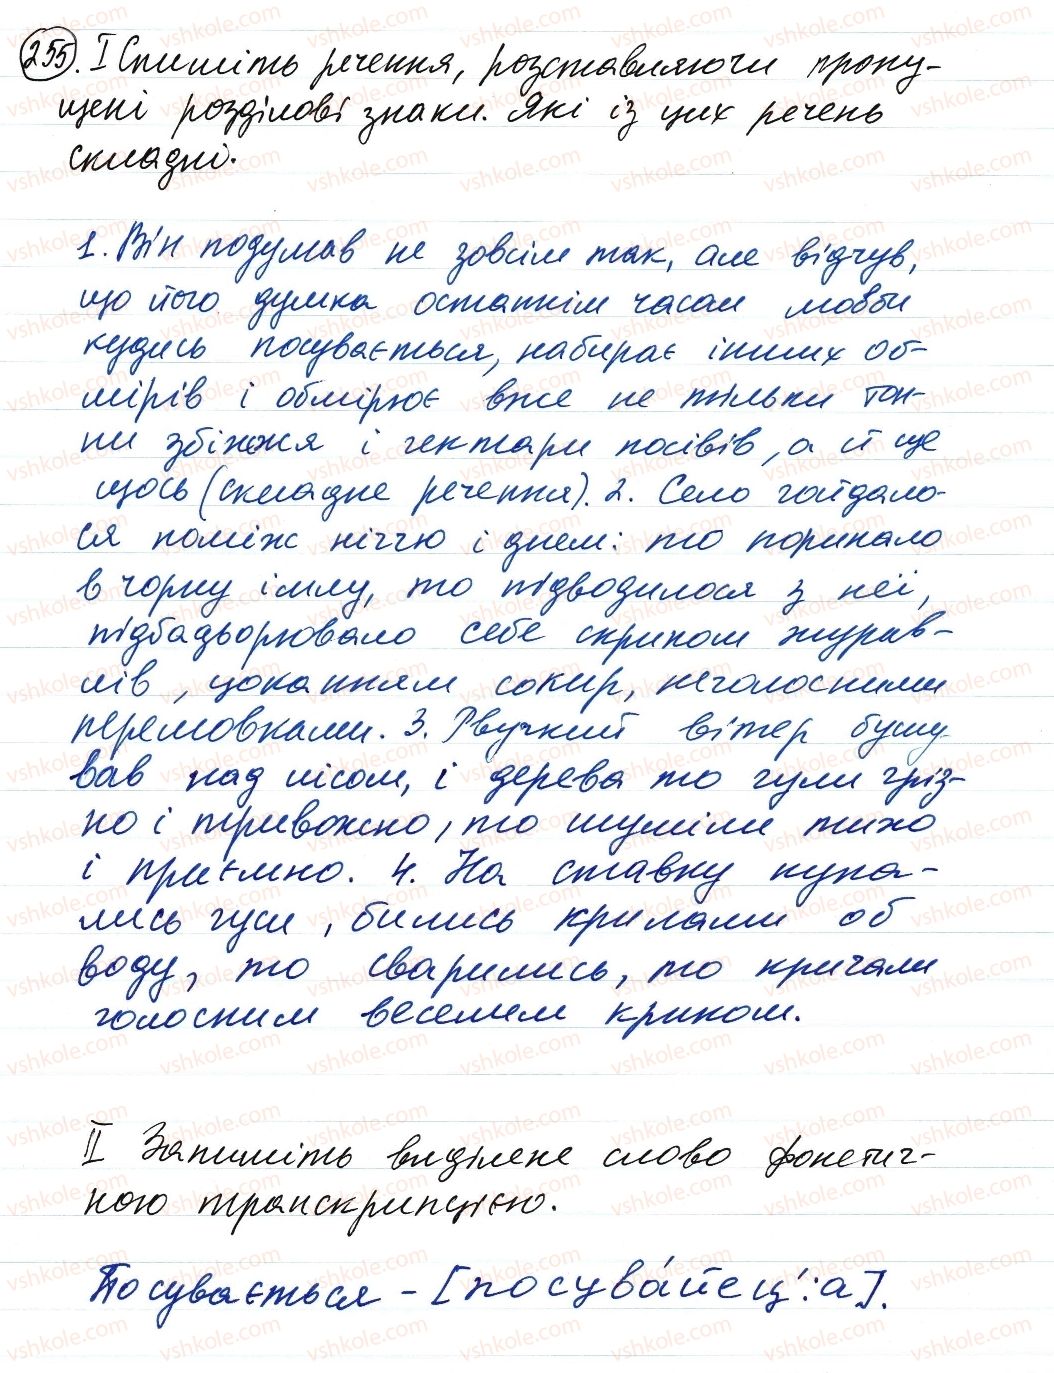 255. I Спишіть речення, розставляючи пропу-
щені розділові знаки. Які із цих речень
складні.
1. Він подумав не зовсім так, але відчув,
що його думка останнім часом мовби
кудись посувається, набирає інших об-
мірів і обмірює вже не тільки тон-
ни збіжжя і гектари посівів, а й ще
щось (складне речення). 2. Село гойдало-
ся поміж ніччю і днем: то поринало
в чорну імлу, то підводилося з неї,
підбадьорювало себе скрипом журав-
лів, цоканням сокир, неголосними
перемовками. 3. Рвучкий вітер бушу
вав над лісом, і дерева то гули гріз-
но і тривожно, то шуміли тихо
і приємно. 4. На ставку купа-
лись гуси, бились крилами об
воду, то сварились, то кричали
голосним веселим криком.
II Запишіть виділене слово фонетич-
ною транскрипцією.
Посувається – [посува́йец':а].